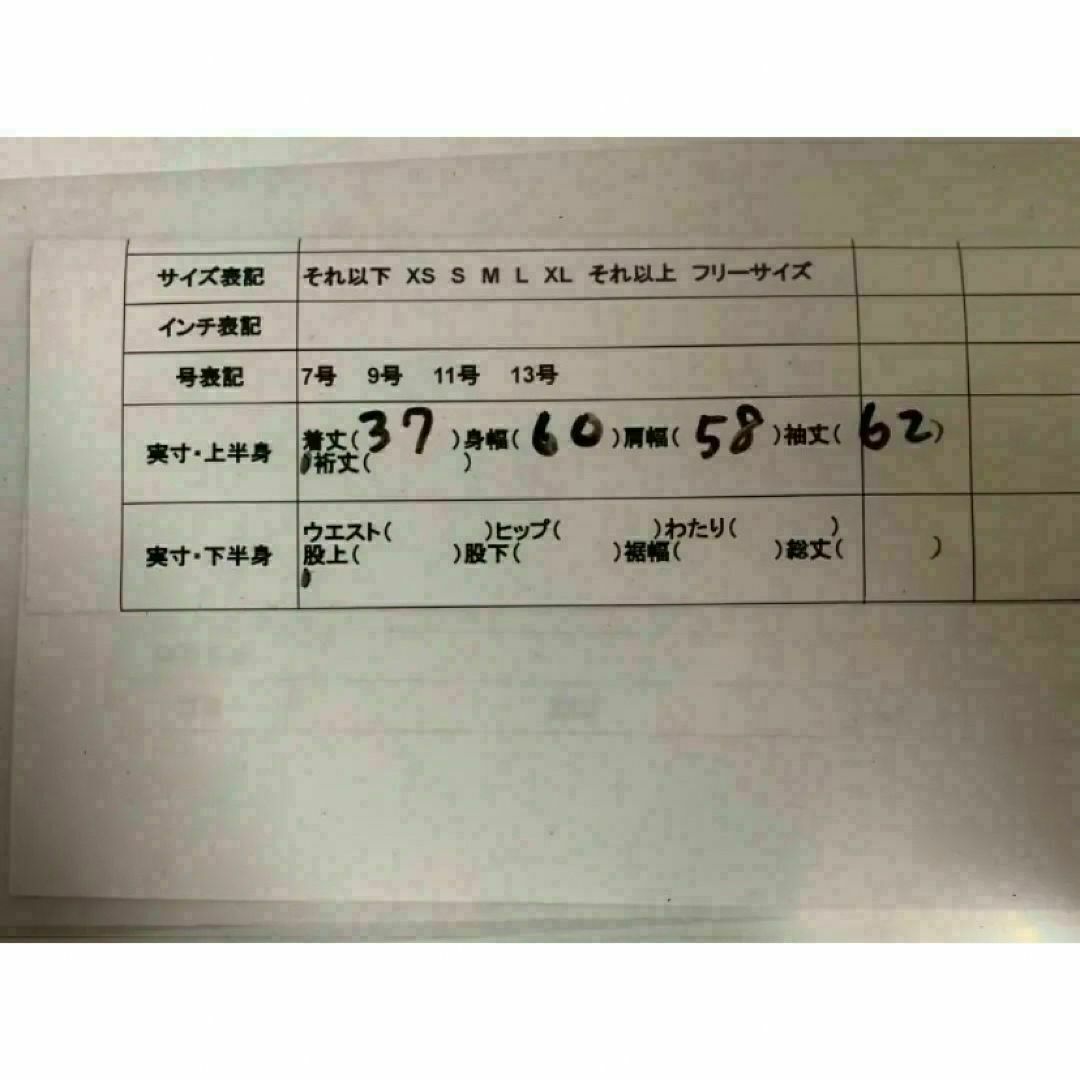 サイズ表記 それ以下 XS S M L XL それ以上 フリーサイズ
インチ表記
号表記 7号 9号 11号 13号
実寸・上半身 着丈(37)身幅(60)肩幅(58)袖丈(62)
裄丈( )
実寸・下半身 ウエスト( )ヒップ( )わたり( )
股上( )股下( )裾幅( )総丈( )